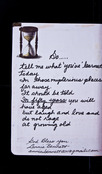 So.....
tell me what you've learned
Today
In those mysterious places
far away.
It should be told
In fifty years you will
have aged
but laugh and love and
do not rage
at growing old